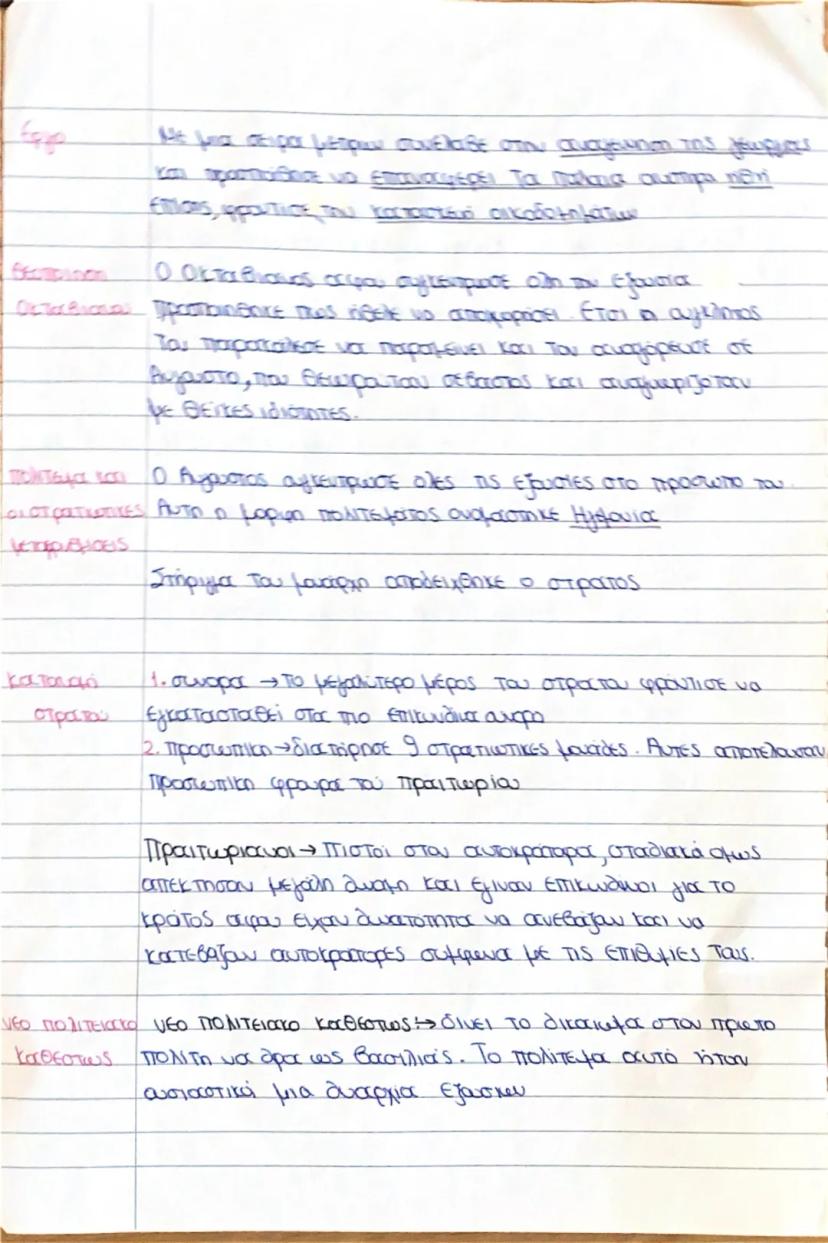 Έργο
Με μια σειρα μετρων συνέλαβε στην αναγεννηση της γεωργιας
και προσπαθησε να επαναφερει τα παλαια αυστηρα ηθη
επισης, φροντισε την κατασκευη οικοδομηματων
Θεοποιηση
Οκταβιανου
Ο Οκταβιανος αφου συγκεντρωσε ολη την εξουσια
προσποιηθηκε πως ηθελε να αποχωρησει. Ετσι η συγκλητος
τον παρακαλεσε να παραμεινει και τον αναγορευσε σε
Αυγουστο, που θεωρουταν σεβαστος και αναγνωριζοταν
με θεϊκες ιδιοτητες.
πολιτευμα και
οι στρατιωτικες
μεταρρυθμισεις
Ο Αυγουστος συγκεντρωσε ολες τις εξουσιες στο προσωπο του.
Αυτη η μορφη πολιτευματος ονομαστηκε Ηγεμονια
Στήριγμα του μοναρχη αποδειχθηκε ο στρατος
κατανομη
στρατου
1. συνορα → το μεγαλυτερο μέρος του στρατου φροντισε να
εγκατασταθει στα πιο επικινδυνα συνορα
2. προσωπικη → διατηρησε 9 στρατιωτικες μοναδες. Αυτες αποτελουσαν
προσωπικη φρουρα του πραιτωρια
Πραιτωριανοι → πιστοι στον αυτοκρατορα, σταδιακά ομως
απεκτησαν μεγαλη δυναμη και εγιναν επικινδυνοι για το
κράτος αφου ειχαν δυνατοτητα να ανεβαζουν και να
κατεβαζουν αυτοκρατορες συμφωνα με τις επιθυμιες τους.
νεο πολιτειακο
καθεστως
νεο πολιτειακο καθεστως → δινει το δικαιωμα στον πρωτο
πολιτη να δρα ως βασιλιας. Το πολιτευμα αυτό ήταν
ουσιαστικά μια δυαρχια εξουσιων